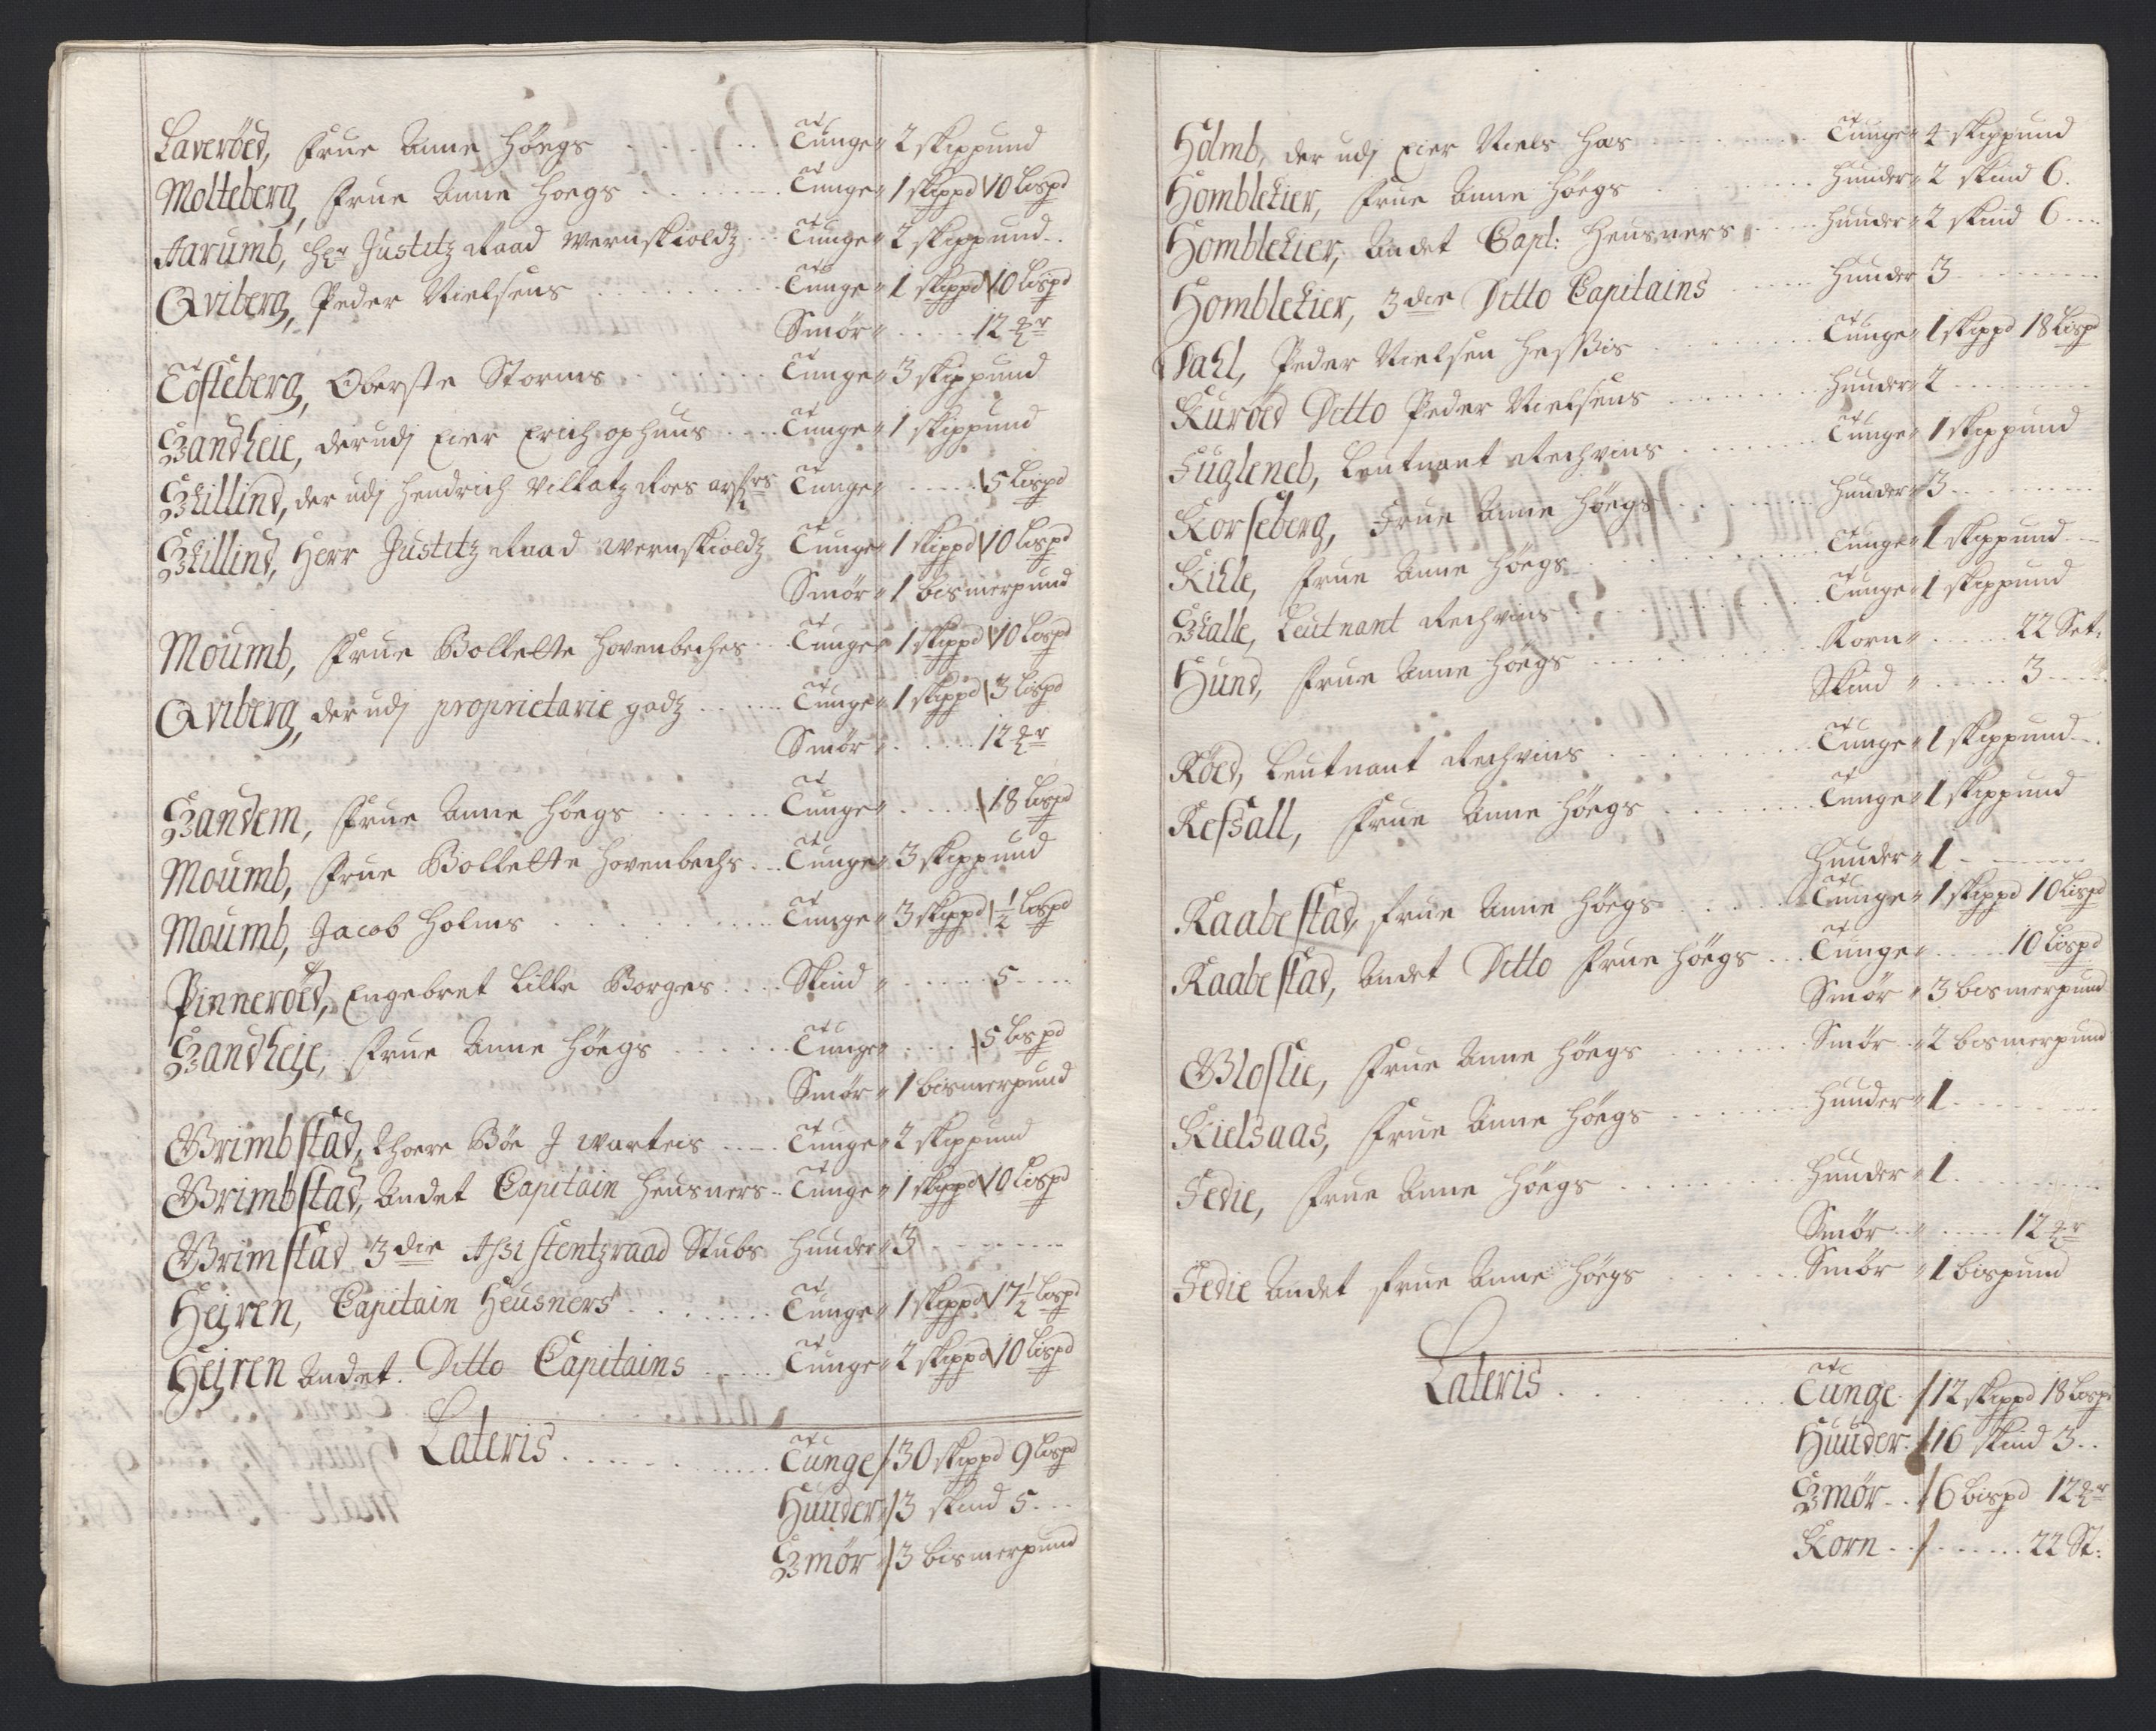 Laveröed, Frue Anne Höegs . . . . . Tunge " 2 skippund
Molteberg, Frue Anne Hoegs . . . . . Tunge " 1 skippd 10 Lispd
Aarumb, Hr Justitz Raad Wernskioldz . . Tunge " 2 skippund . .
Qviberg, Peder Nielsens . . . . . Tunge " 1 skippd 10 Lispd
Smør " . . . . 12 mr
Tosteberg, Oberste Storms . . . . . Tunge " 3 skippund
Sandheie, der udj Eier Erich ophuus . . . Tunge " 1 skippund
Skillind, der udj Hendrich Villatz Roes Tunge " . . . . 5 Lispd
Skillind, Herr Justitz Raad Wernskioldz Tunge " 1 skippd 10 Lispd
Smør " 1 bismerpund
Moumb, Frue Bollette Hovenbeches . . Tunge " 1 skippd 10 Lispd
Qviberg, der udj proprietarie godz . . . . Tunge " 1 skippd 3 Lispd
Smør " . . . . 12 mr
Sandem, Frue Anne Höegs . . . . . Tunge " . . . . 18 Lispd
Moumb, Frue Bollette Hovenbechs . . . Tunge " 3 skippund
Moumb, Jacob Holms . . . . . Tunge " 3 skippd 1/2 Lispd
Pinneröed, Engebret Lille Borges . . . . Skind " . . . . 5 . . . .
Sandheje, Frue Anne Höegs . . . . . Tunge " . . . . 5 Lispd
Smør " 1 bismerpund
Grimbstad, Thore Böe J Warteis . . . . Tunge " 2 skippund
Grimbstad, Andet Capitain Heusners . . Tunge " 1 skippd 10 Lispd
Grimstad 3die Assistentzraad Stubs Hunder " 3 . . . . .
Hejren, Capitain Heusners . . . . . Tunge " 1 skippd 17 1/2 Lispd
Hejren Andet. Ditto Capitains . . . . Tunge " 2 skippd 10 Lispd
Lateris . . . . . Tunge / 30 skippd 9 Lispd
Huuder / 3 skind 5 . . .
Smør / 3 bismerpund
Holmb, der udj Eier Niels Has . . . . . Tunge " 4 skippund
Homblekier, Frue Anne Höegs . . . . . Hunder " 2 skind 6 .
Homblekier, Andet Capt: Heusners . . . Hunder " 2 skind 6 . . .
Homblekier, 3die Ditto Capitains . . . . Hunder 3 . . . . .
Dahl, Peder Nielsen Hessis . . . . . Tunge " 1 skippd 18 Lispd
Kuröed Ditto Peder Nielsens . . . . . Hunder " 2 . . . . .
Fugleneb, Leutnant Rechvins . . . . . Tunge " 1 skippund
Korseberg, Frue Anne Höegs . . . . . Hunder " 3 . . . . .
Kihle, Frue Anne Höegs . . . . . Tunge " 1 skippund . .
Skalle, Leutnant Rechvins . . . . . Tunge " 1 skippund
Hund, Frue Anne Höegs . . . . . Korn " . . . . 22 Set:
Skind " . . . . 3 . . . .
Röed, Leutnant Rechvins . . . . . Tunge " 1 skippund . .
Refsall, Frue Anne Höegs . . . . . Tunge " 1 skippund
Hunder " 1 . . . . .
Kaabestad, Frue Anne Höegs . . . . . Tunge " 1 skippd 10 Lispd
Kaabestad, Andet Ditto Frue Höegs . . . Tunge " . . . . 10 Lispd
Smør " 3 bismerpund
Gloslie, Frue Anne Höegs . . . . . Smør " 2 bismerpund
Kielsaas, Frue Anne Höegs . . . . . Hunder " 1 . . . . .
Fedie, Frue Anne Höegs . . . . . Hunder " 1 . . . . .
Smør " . . . . 12 mr
Fedie Andet Frue Anne Höegs . . . . . Smør " 1 bispund
Lateris . . . . . Tunge / 12 skippd 18 Lispd
Huuder / 16 skind 3 . .
Smør . . / 6 bispd 12 mr
Korn . . / . . . . 22 St: